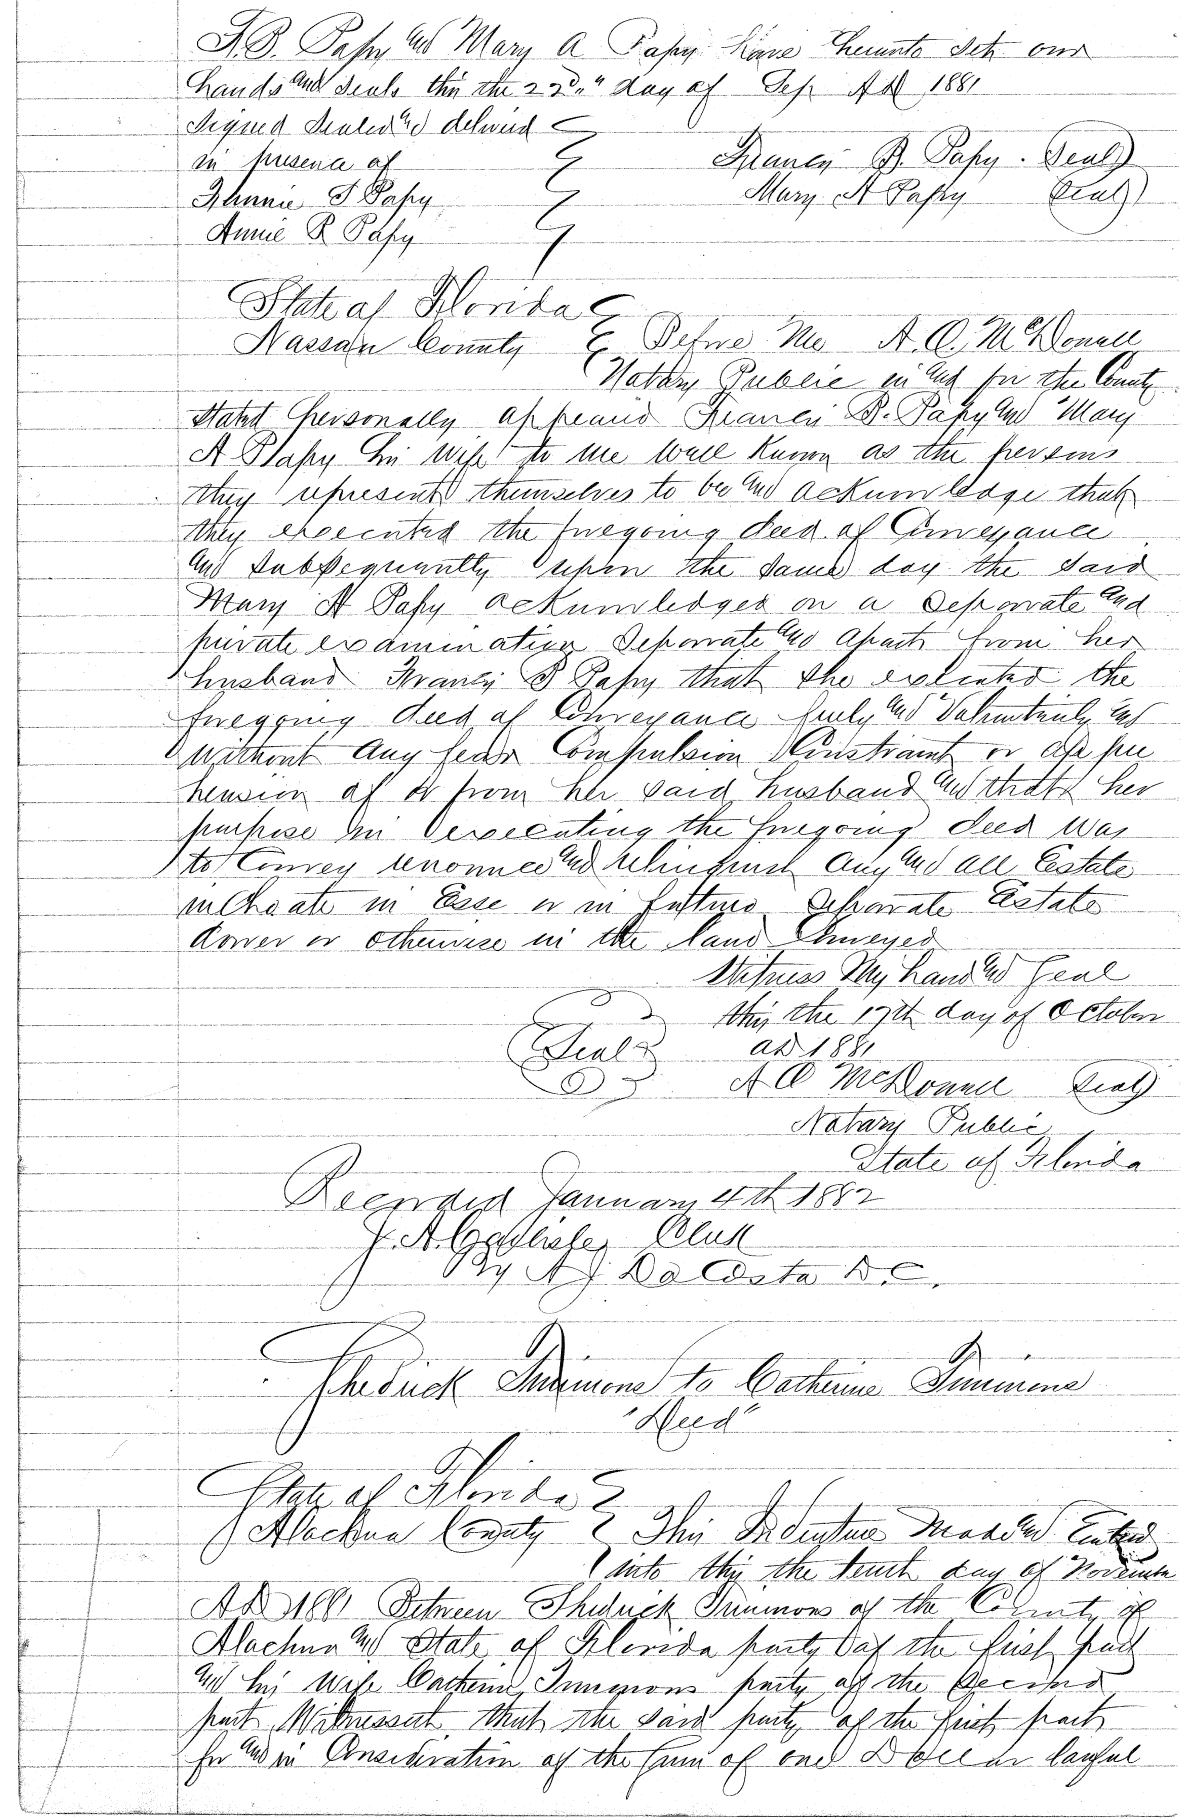 F.B. Papy and Mary A Papy Have hereunto Set our
hands and Seals this the 22nd" day of Sep AD 1881
Signed Sealed and delivered
in presence of Francis B. Papy. Seal
Fannie S Papy Mary A Papy Seal
Annie R Papy
State of Florida
Nassau County Before Me A. O. McDonell
Notary Public in and for the County
Stated personally appeared Francis B. Papy and Mary
A Papy his wife to me well Known as the persons
they represent themselves to be and acknowledge that
they executed the foregoing deed of Conveyance
and Subsequently upon the Same day the Said
Mary A Papy acknowledged on a Seporate and
private examination Seporate and apart from her
husband Francis B Papy that She executed the
foregoing deed of Conveyance freely and Voluntarily and
without any fear Compulsion Constraint or appre
hension of or from her Said husband and that her
purpose in executing the foregoing deed was
to Convey renounce and relinquish any and all Estate
inchoate in Esse or in futuro Seporate Estate
dower or otherwise in the land Conveyed
Witness My hand and Seal
this the 17th day of October
Seal AD 1881
A O McDonell Seal
Notary Public
State of Florida
Recorded January 4th 1882
J. A. Clerk
By A J Da Costa D. C.
Shedrick Timmons to Catherine Timmons
"Deed"
State of Florida
Alachua County This Indenture Made and Entered
into this the tenth day of November
AD 1881 Between Shedrick Timmons of the County of
Alachua and State of Florida party of the first part
and his wife Catherine Timmons party of the Second
part Witnesseth that the Said party of the first part
for and in Consideration of the Sum of one Dollar lawful